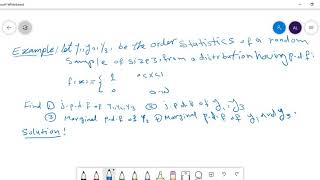 Example: let y₁, y₂, y₃, be the order statistics of a random
sample of size 3, from a distribution having p.d.f:
f(x)= { 1 0<x<1
0 o.w
Find ① j.p.d.f of y₁,y₂,y₃ ② j.p.d.f of y₁, y₃
③ Marginal p.d.f of y₂ ④ Marginal p.d.f of y₁ and y₃.
Solution: